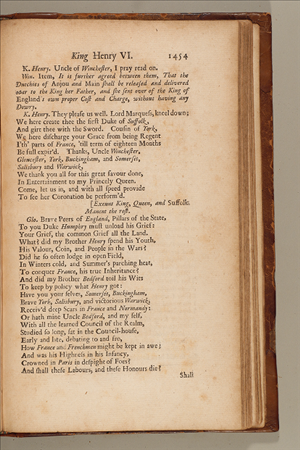 King Henry VI. 1454
K. Henry. Uncle of Winchester, I pray read on.
Win. Item, It is further agreed between them, That the
Dutchies of Anjou and Main shall be released and delivered
over to the King her Father, and she sent over of the King of
England's own proper Cost and Charge, without having any
Dowry.
K. Henry. They please us well. Lord Marquess, kneel down;
We here create thee the first Duke of Suffolk,
And girt thee with the Sword. Cousin of York,
We here discharge your Grace from being Regent
I'th' parts of France, 'till term of eighteen Months
Be full expir'd. Thanks, Uncle Winchester,
Glocester, York, Buckingham, and Somerset,
Salisbury and Warwick,
We thank you all for this great favour done,
In Entertainment to my Princely Queen.
Come, let us in, and with all speed provade
To see her Coronation be perform'd.
[Exeunt King, Queen, and Suffolk.
Manent the rest.
Glo. Brave Peers of England, Pillars of the State,
To you Duke Humphry must unload his Grief:
Your Grief, the common Grief all the Land.
What! did my Brother Henry spend his Youth,
His Valour, Coin, and People in the Wars?
Did he so often lodge in open Field,
In Winters cold, and Summer's parching heat,
To conquer France, his true Inheritance?
And did my Brother Bedford toil his Wits
To keep by policy what Henry got:
Have you your selves, Somerset, Buckingham,
Brave York, Salisbury, and victorious Warwick,
Receiv'd deep Scars in France and Normandy:
Or hath mine Uncle Bedford, and my self,
With all the learned Council of the Realm,
Studied so long, sat in the Council-house,
Early and late, debating to and fro,
How France and Frenchmen might be kept in awe;
And was his Highness in his Infancy,
Crowned in Paris in despight of Foes?
And shall these Labours, and these Honours die?
Shall